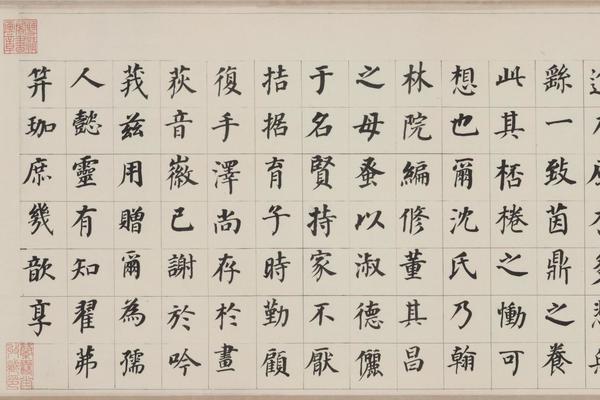 繇一致茵鼎之養
此其桮棬之慟可
想也爾沈氏乃翰
林院編修董其昌
之母蚤以淑德儷
于名賢持家不厭
拮据育子時勤顧
復手澤尚存於畫
荻音徽已謝於吟
莪茲用贈爾為孺
人懿靈有知翟茀
笄珈庶幾歆享